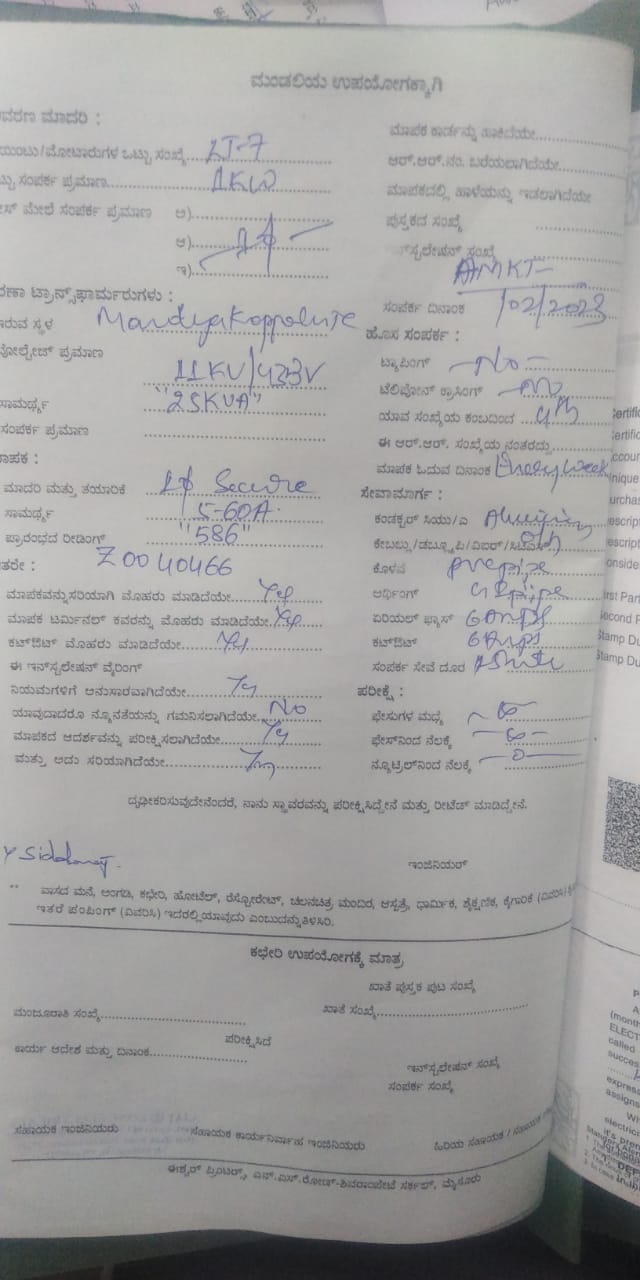 ಮಂಡಲಿಯ ಉಪಯೋಗಕ್ಕಾಗಿ
ವರಣ ಮಾದರಿ :
ಯಿಂಟು/ಮೋಟಾರುಗಳ ಒಟ್ಟು ಸಂಖ್ಯೆ....LT-7
ಟ್ಟು ಸಂಪರ್ಕ ಪ್ರಮಾಣ....1KW
ಮೇಲೆ ಸಂಪರ್ಕ ಪ್ರಮಾಣ ಅ)
ಆ) 1ϕ
ಇ)
ರಣಾ ಟ್ರಾನ್ಸ್‌ಫಾರ್ಮರುಗಳು :
ಇರುವ ಸ್ಥಳ Mandyakoppalu
ವೋಲ್ಟೇಜ್ ಪ್ರಮಾಣ
11KV/433V
ಸಾಮರ್ಥ್ಯ "25KVA"
ಸಂಪರ್ಕ ಪ್ರಮಾಣ
ಮಾಪಕ :
ಮಾದರಿ ಮತ್ತು ತಯಾರಿಕೆ 1ϕ Secure
ಸಾಮರ್ಥ್ಯ 5-60A
ಪ್ರಾರಂಭದ ರೀಡಿಂಗ್ "586"
ಇತರೇ : Z0040466
ಮಾಪಕವನ್ನು ಸರಿಯಾಗಿ ಮೊಹರು ಮಾಡಿದೆಯೇ....Yes
ಮಾಪಕ ಟರ್ಮಿನಲ್ ಕವರನ್ನು ಮೊಹರು ಮಾಡಿದೆಯೇ.Yes
ಕಟ್‌ಔಟ್ ಮೊಹರು ಮಾಡಿದೆಯೇ....Yes
ಈ ಇನ್‌ಸ್ಟಲೇಷನ್ ವೈರಿಂಗ್
ನಿಯಮಗಳಿಗೆ ಅನುಸಾರವಾಗಿದೆಯೇ....Yes
ಯಾವುದಾದರೂ ನ್ಯೂನತೆಯನ್ನು ಗಮನಿಸಲಾಗಿದೆಯೇ.No
ಮಾಪಕದ ಆದರ್ಶವನ್ನು ಪರೀಕ್ಷಿಸಲಾಗಿದೆಯೇ....Yes
ಮತ್ತು ಅದು ಸರಿಯಾಗಿದೆಯೇ....Yes
ಮಾಪಕ ಕಾರ್ಡನ್ನು ಹಾಕಿದೆಯೇ
ಆರ್.ಆರ್.ನಂ. ಬರೆಯಲಾಗಿದೆಯೇ
ಮಾಪಕದಲ್ಲಿ ಹಾಳೆಯನ್ನು ಇಡಲಾಗಿದೆಯೇ
ಪುಸ್ತಕದ ಸಂಖ್ಯೆ
ಇನ್‌ಸ್ಟಲೇಷನ್ ಸಂಖ್ಯೆ
AMKT-
ಸಂಪರ್ಕ ದಿನಾಂಕ /02/2023
ಹೊಸ ಸಂಪರ್ಕ :
ಟ್ಯಾಪಿಂಗ್ -No-
ಟೆಲಿಫೋನ್ ಕ್ರಾಸಿಂಗ್ -No
ಯಾವ ಸಂಖ್ಯೆಯ ಕಂಬದಿಂದ 4th
ಈ ಆರ್.ಆರ್. ಸಂಖ್ಯೆಯ ನಂತರದ್ದು
ಮಾಪಕ ಓದುವ ದಿನಾಂಕ Every week
ಸೇವಾಮಾರ್ಗ :
ಕಂಡಕ್ಟರ್ ಸಿಯು/ಎ
ಕೇಬಲ್ಲು/ಡಬ್ಲ್ಯೂಪಿ/ವಿಐಆರ್/ಸಿಟಿಎಸ್
ಕೊಳವೆ pvcpipe
ಅರ್ಥಿಂಗ್ GI pipe
ಏರಿಯಲ್ ಫ್ಯೂಸ್ 6Amps
ಕಟ್‌ಔಟ್ 6Amps
ಸಂಪರ್ಕ ಸೇವೆ ದೂರ
ಪರೀಕ್ಷೆ :
ಫೇಸುಗಳ ಮಧ್ಯೆ ∞
ಫೇಸ್‌ನಿಂದ ನೆಲಕ್ಕೆ ∞
ನ್ಯೂಟ್ರಲ್‌ನಿಂದ ನೆಲಕ್ಕೆ -0-
ದೃಢೀಕರಿಸುವುದೇನೆಂದರೆ, ನಾನು ಸ್ಥಾವರವನ್ನು ಪರೀಕ್ಷಿಸಿದ್ದೇನೆ ಮತ್ತು ರೀಟೆಡ್ ಮಾಡಿದ್ದೇನೆ.
ಇಂಜಿನಿಯರ್
** ವಾಸದ ಮನೆ, ಅಂಗಡಿ, ಕಛೇರಿ, ಹೋಟೆಲ್, ರೆಸ್ಟೋರೆಂಟ್, ಚಲನಚಿತ್ರ ಮಂದಿರ, ಆಸ್ಪತ್ರೆ, ಧಾರ್ಮಿಕ, ಶೈಕ್ಷಣಿಕ, ಕೈಗಾರಿಕೆ (ವಿವರಿಸಿ)
ಇತರೆ ಪಂಪಿಂಗ್ (ವಿವರಿಸಿ) ಇದರಲ್ಲಿ ಯಾವುದು ಎಂಬುದನ್ನು ತಿಳಿಸಿರಿ.
ಕಛೇರಿ ಉಪಯೋಗಕ್ಕೆ ಮಾತ್ರ
ಖಾತೆ ಪುಸ್ತಕ ಪುಟ ಸಂಖ್ಯೆ
ಮಂಜೂರಾತಿ ಸಂಖ್ಯೆ
ಖಾತೆ ಸಂಖ್ಯೆ
ಪರೀಕ್ಷಿಸಿದೆ
ಕಾರ್ಯ ಆದೇಶ ಮತ್ತು ದಿನಾಂಕ
ಇನ್‌ಸ್ಟಲೇಷನ್ ಸಂಖ್ಯೆ
ಸಂಪರ್ಕ ಸಂಖ್ಯೆ
ಸಹಾಯಕ ಇಂಜಿನಿಯರು ಸಹಾಯಕ ಕಾರ್ಯನಿರ್ವಾಹ ಇಂಜಿನಿಯರು ಹಿರಿಯ ಸಹಾಯಕ / ಸಹಾಯಕ
ಈಶ್ವರ್ ಪ್ರಿಂಟರ್ಸ್, ಎನ್.ಎಸ್.ರೋಡ್-ಶಿವರಾಂಪೇಟೆ ಸರ್ಕಲ್, ಮೈಸೂರು